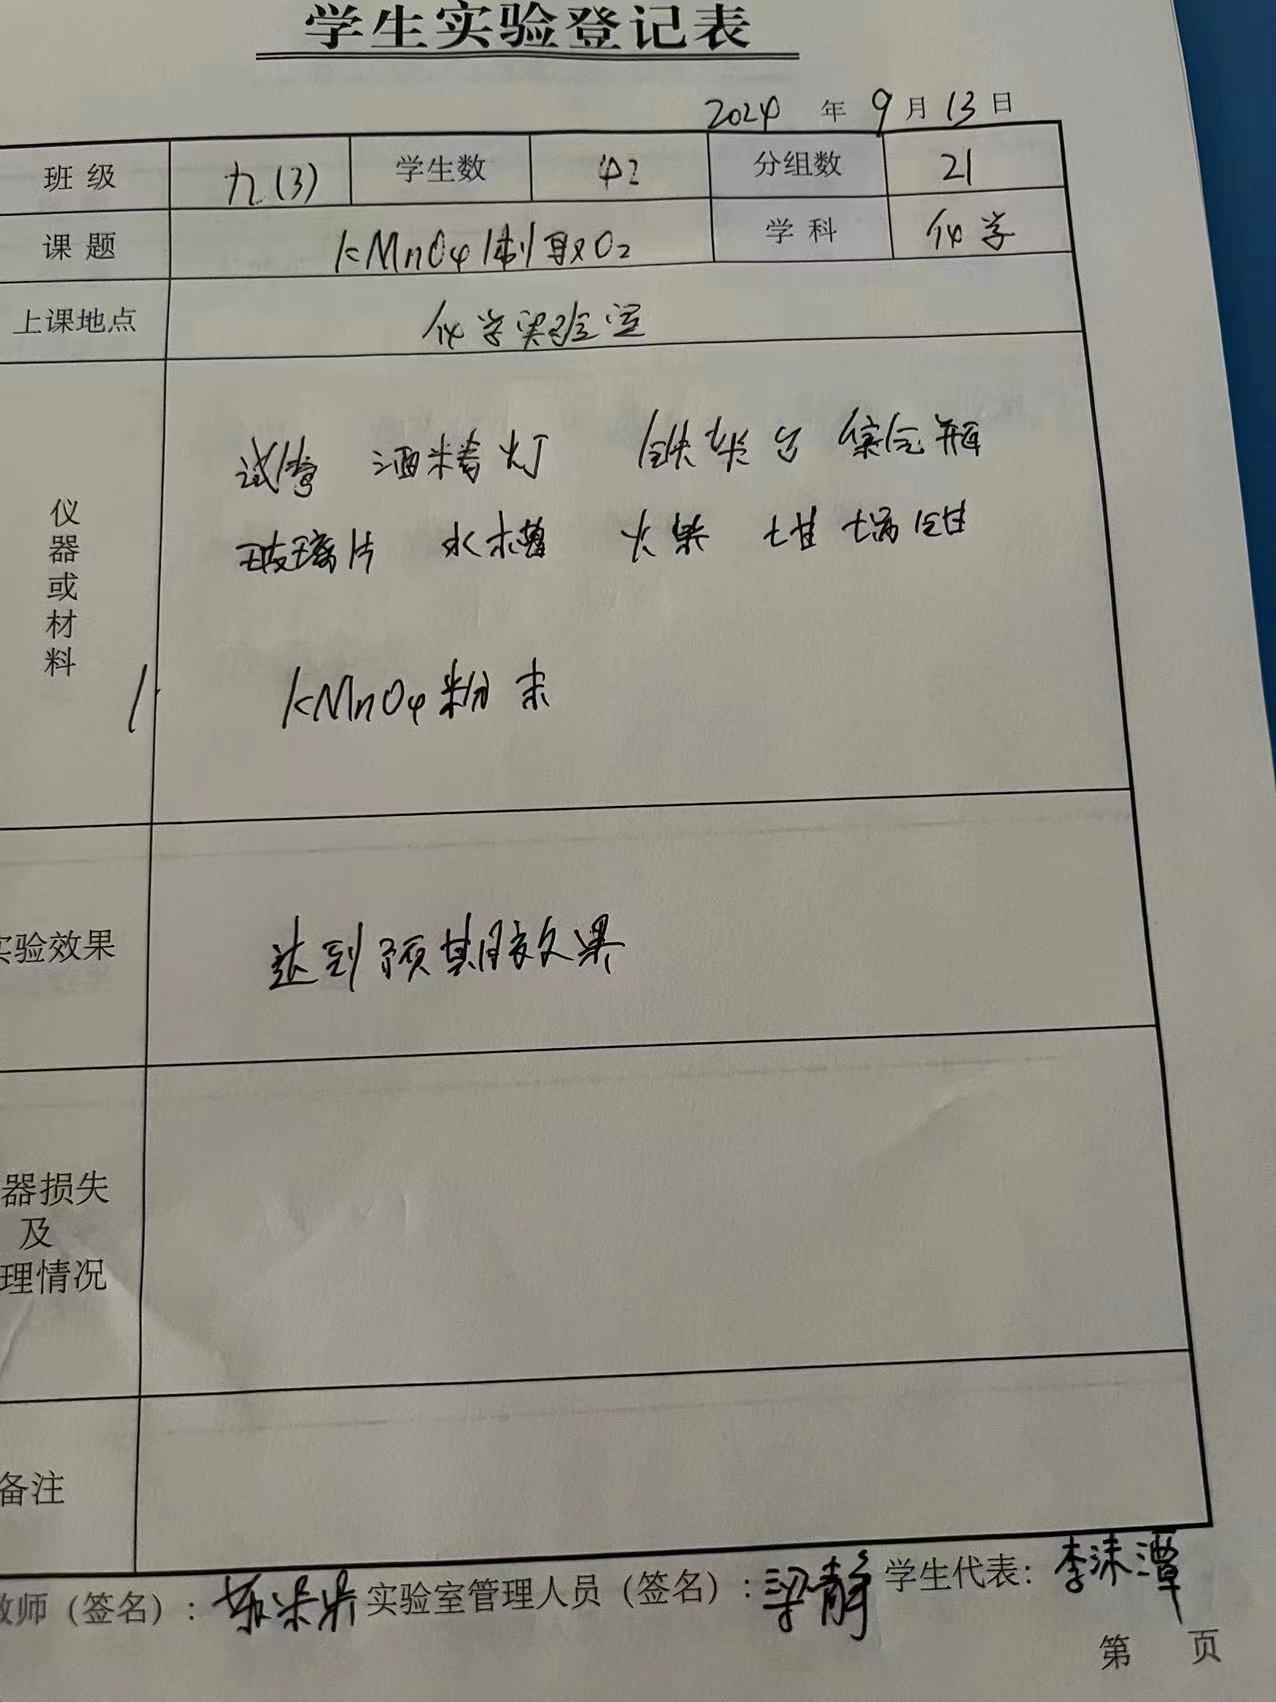 学生实验登记表
2024 年 9 月 13 日
班级 九(3) 学生数 42 分组数 21
课题 KMnO4制取O2 学科 化学
上课地点 化学实验室
仪器或材料
试管 酒精灯 铁架台 集气瓶
玻璃片 水槽 火柴 坩埚钳
KMnO4粉末
实验效果 达到预期效果
器损失
及
理情况
备注
教师（签名）： 实验室管理人员（签名）：梁静 学生代表：李沫潭
第 页